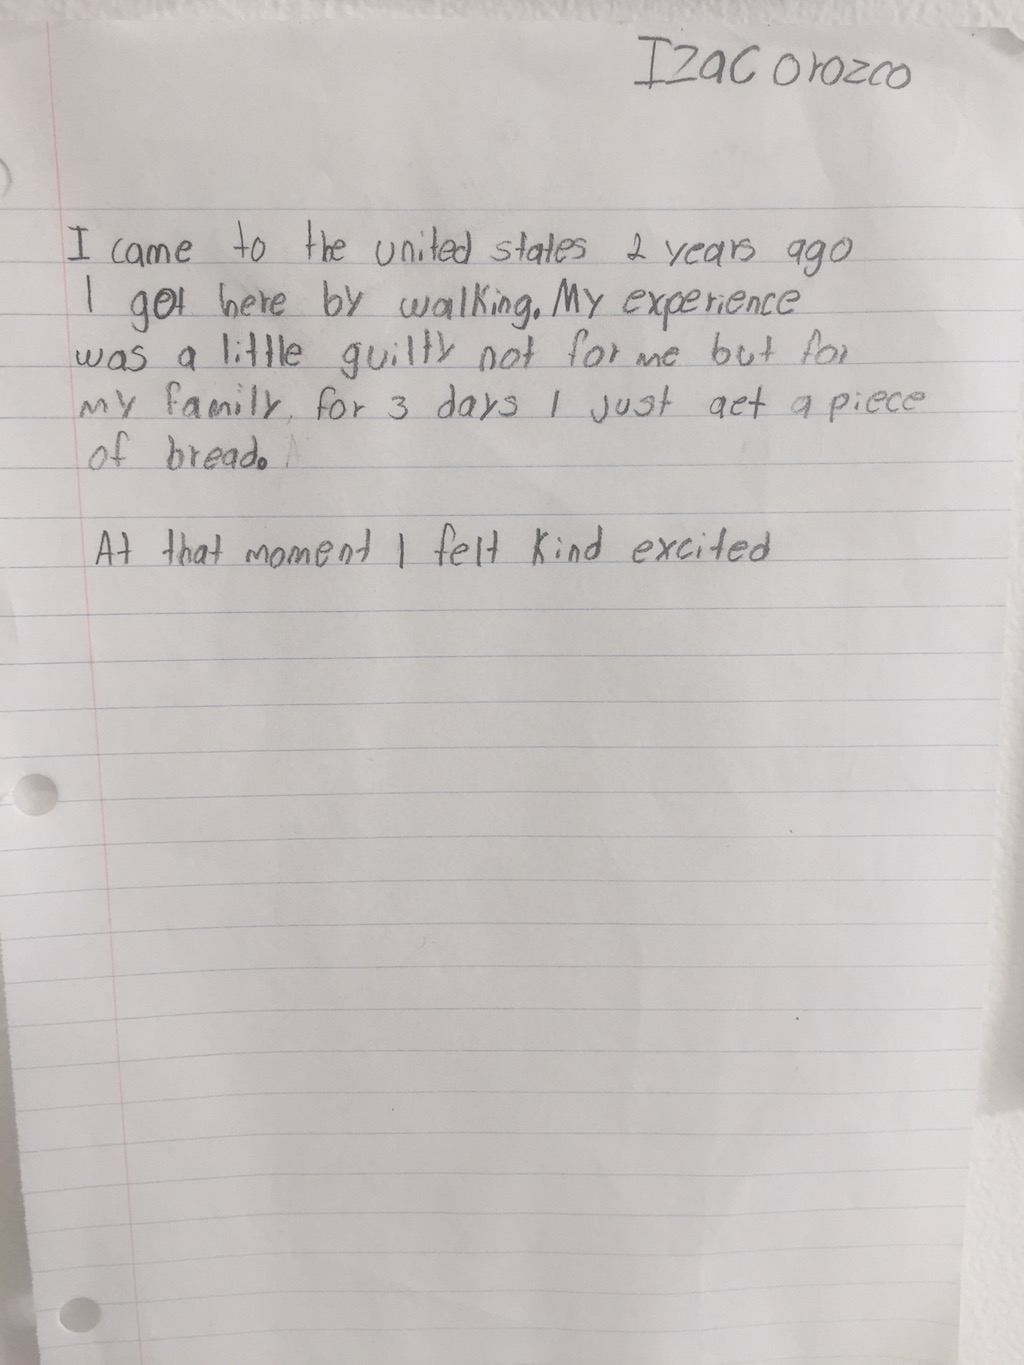 Izac orozco
I came to the united states 2 years ago
I got here by walking. My experience
was a little guilty not for me but for
my family. for 3 days I just get a piece
of bread.
At that moment I felt kind excited